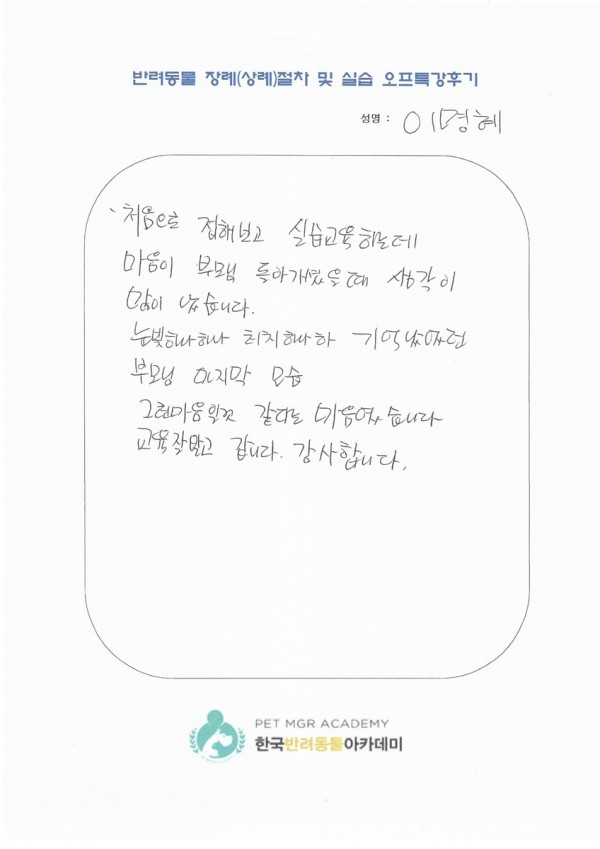 반려동물 장례(상례)절차 및 실습 오프특강후기
성명 : 이명혜
처음으로 접해보고 실습교육하는데
마음이 부모님 돌아가셨을때 생각이
많이 났습니다.
눈빛하나하나 하나하나 기억났었던
부모님 마지막 모습
그런마음일것 같다는 마음이였습니다
교육잘받고 갑니다. 감사합니다.
PET MGR ACADEMY
한국반려동물아카데미